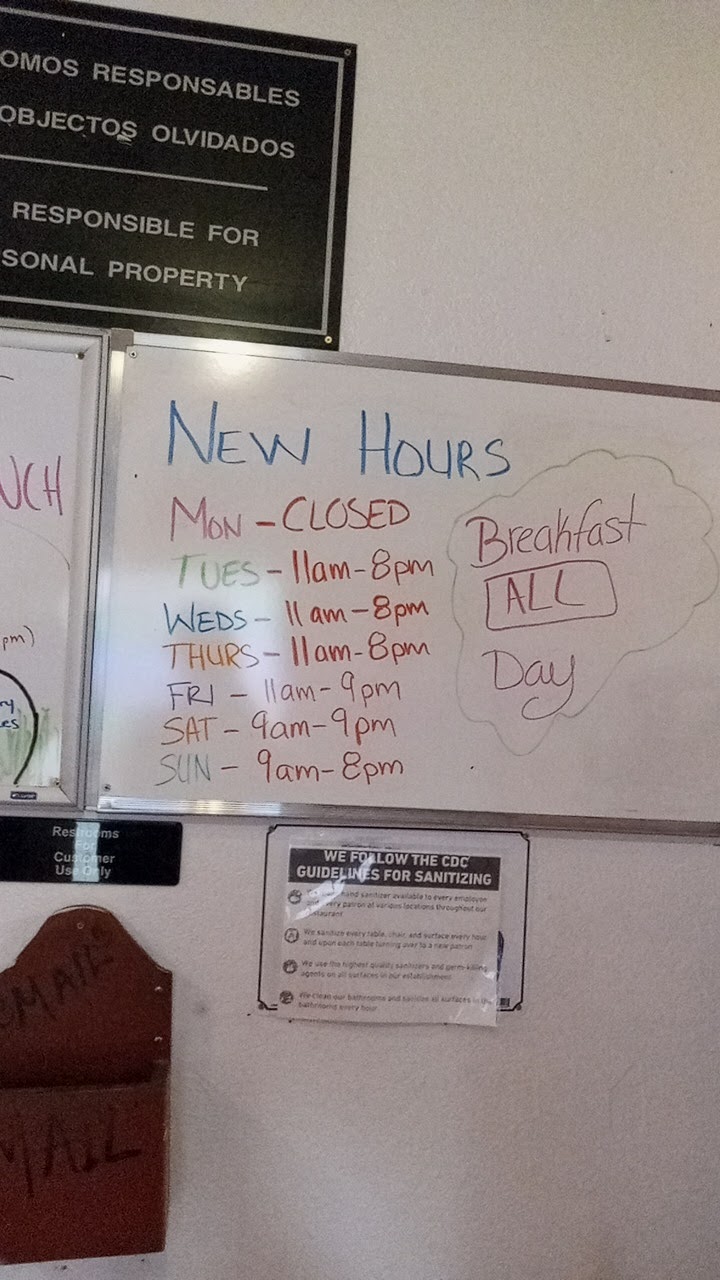 OMOS RESPONSABLES
OBJECTOS OLVIDADOS
RESPONSIBLE FOR
SONAL PROPERTY
NCH
pm)
ry
es
NEW HOURS
MON - CLOSED
TUES - 11am - 8pm
WEDS - 11am - 8pm
THURS - 11am - 8pm
FRI - 11am - 9pm
SAT - 9am - 9pm
SUN - 9am - 8pm
Breakfast
ALL
Day
Restrooms
For
Customer
Use Only
WE FOLLOW THE CDC
GUIDELINES FOR SANITIZING
hand sanitizer available to every employee
every patron at various locations throughout our
restaurant
We sanitize every table, chair, and surface every hour
and upon each table turning over to a new patron
We use the highest quality sanitizers and germ-killing
agents on all surfaces in our establishment
We clean our bathrooms and sanitize all surfaces in the
bathrooms every hour
MAIL
MAIL